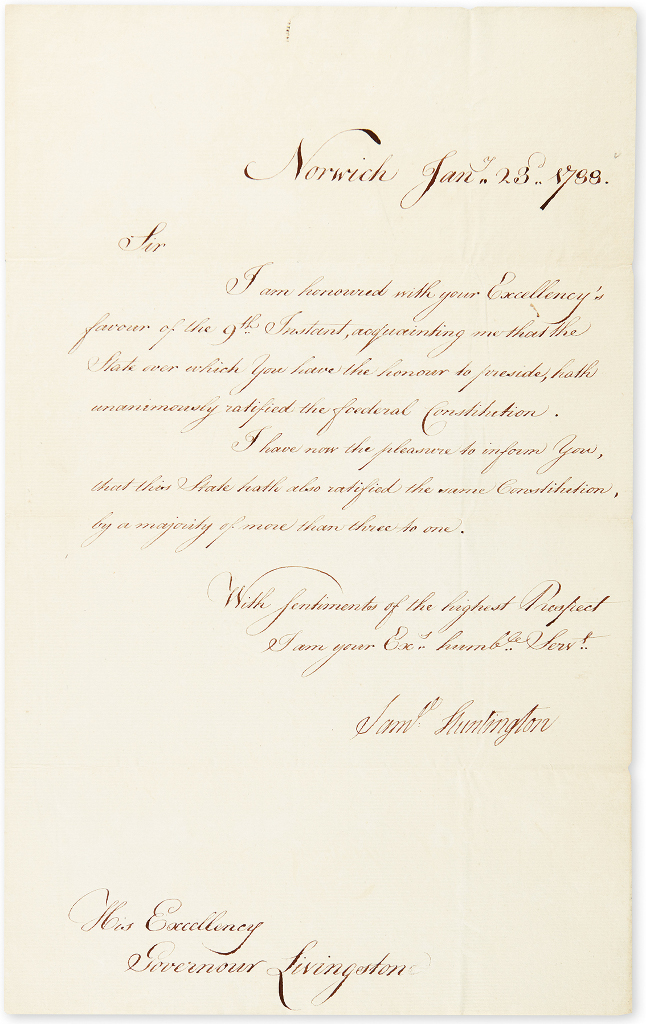 Norwich Jany. 23d. 1788.
Sir
I am honoured with your Excellency's
favour of the 9th. Instant, acquainting me that the
State over which You have the honour to preside, hath
unanimously ratified the foederal Constitution.
I have now the pleasure to inform You,
that this State hath also ratified the same Constitution,
by a majority of more than three to one.
With sentiments of the highest Respect
I am your Exys. humble. Servt.
Saml. Huntington
His Excellency
Governour Livingston